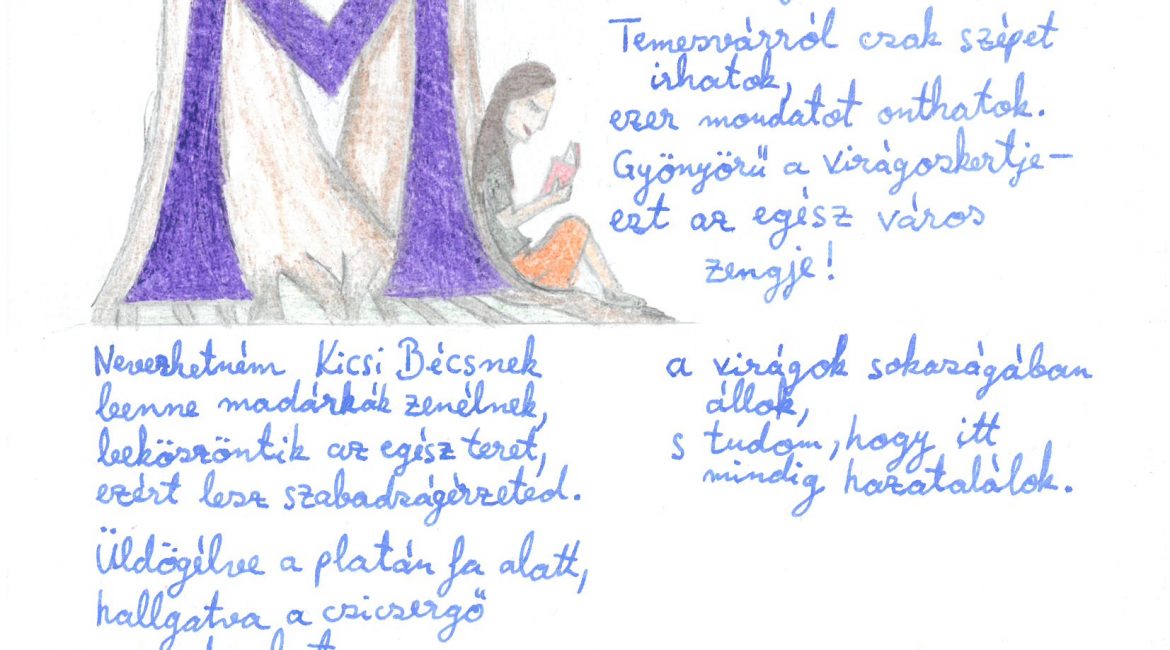 Temesvárról csak szépet
irhatok,
ezer mondatot onthatok.
Gyönyörű a virágoskertje-
ezt az egész város
zengje!
Nevezhetném Kicsi Bécsnek
benne madárkák zenélnek,
beköszöntik az egész teret,
ezért lesz szabadságérzeted.
Üldögélve a platán fa alatt,
hallgatva a csicsergő
a virágok sokaságában
állok,
s tudom, hogy itt
mindig hazatalálok.